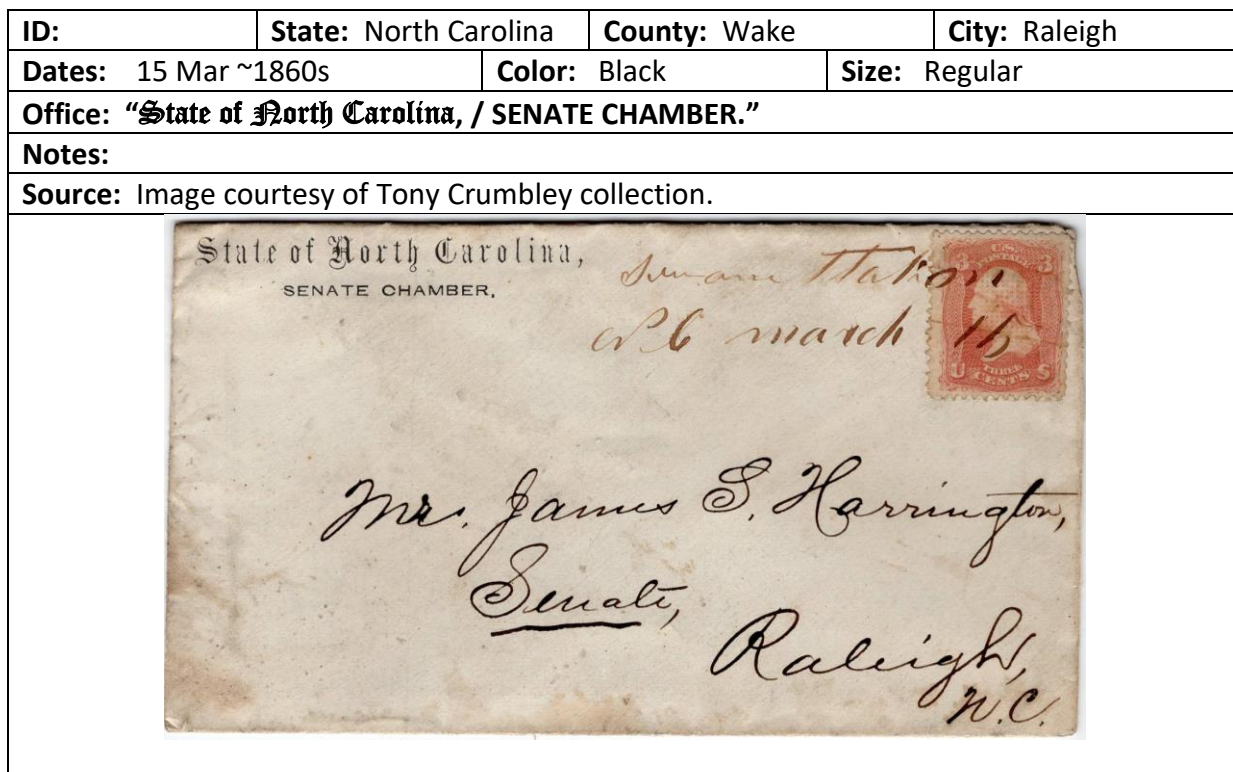 ID: State: North Carolina County: Wake City: Raleigh
Dates: 15 Mar ~1860s Color: Black Size: Regular
Office: “State of North Carolina, / SENATE CHAMBER.”
Notes:
Source: Image courtesy of Tony Crumbley collection.
State of North Carolina,
SENATE CHAMBER,
march 15
U.S.
POSTAGE
3 3
U THREE S
CENTS
Mr. James S. Harrington,
Senate,
Raleigh,
N.C.